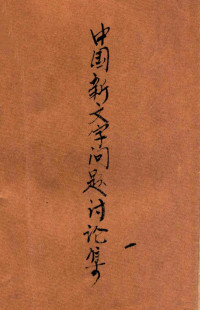 中国新文字问题讨论集
一